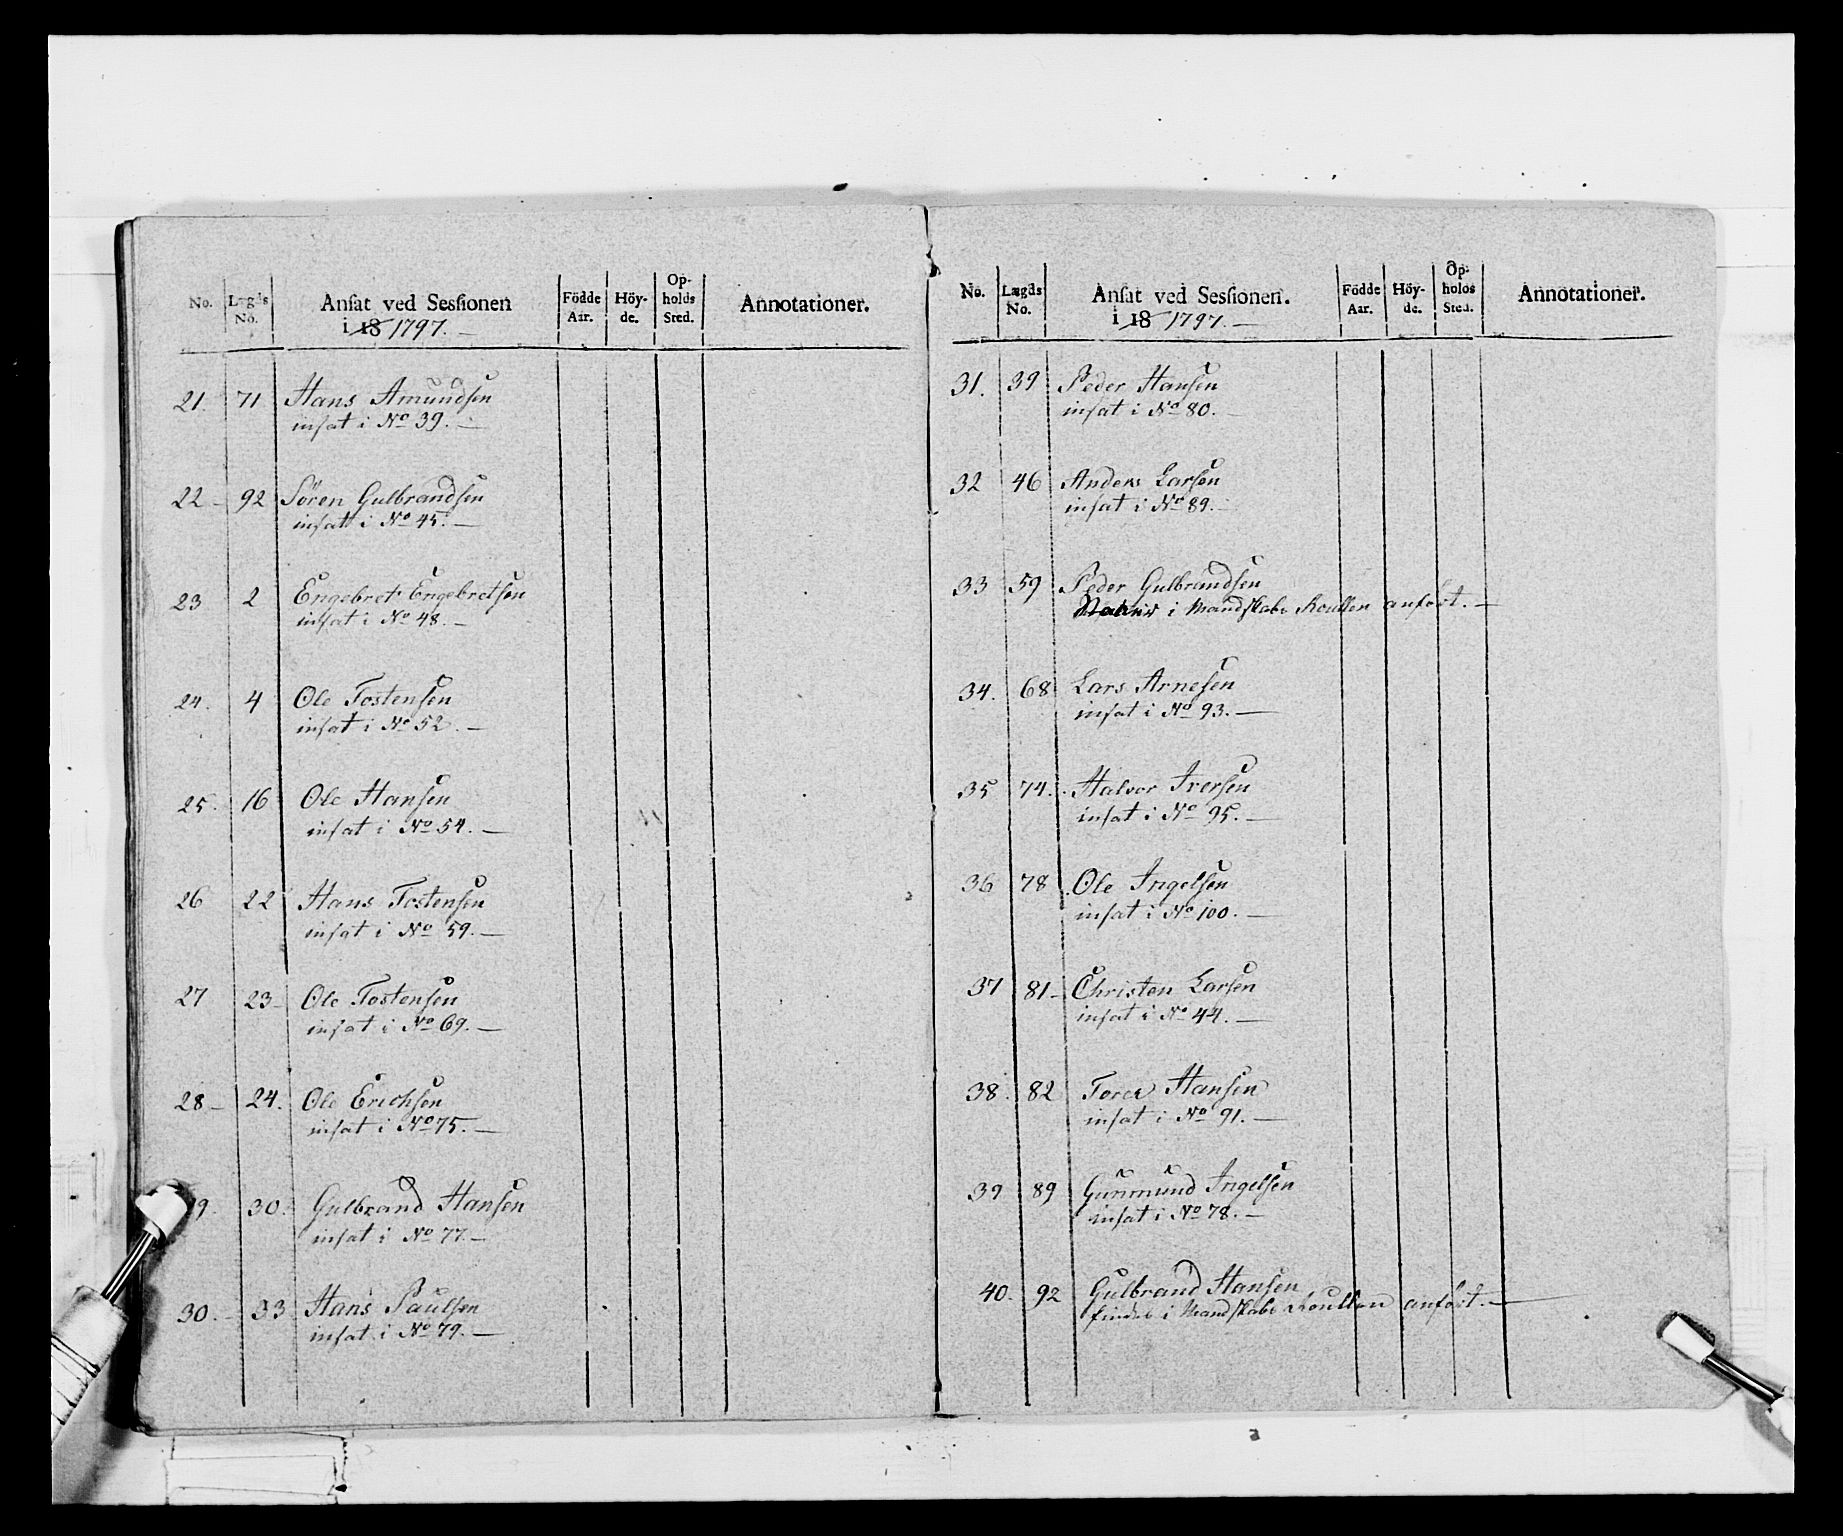 No. Lægds No. Ansat ved Sessionen i 18 1797. Födde Aar. Höy-de. Op-holds Sted. Annotationer.
21. 71 Hans Amundsen
insat i No 39.
22 92 Sören Gulbrandsen
insatt i No 45.
23 2 Engebret Engebretsen
insat i No 48.
24. 4 Ole Tostensen
insat i No 52.
25. 16 Ole Hansen
insat i No 54.
26 22 Hans Tostensen
insat i No 59.
27 23 Ole Tostensen
insat i No 69.
28 24. Ole Erichsen
insat i No 75.
9. 30. Gulbrand Hansen
insat i No 77.
30. 33 Hans Paulsen
insat i No 79.
No. Lægds No. Ansat ved Sessionen. i 18 1797. Födde Aar. Höy-de. Op-holds Sted. Annotationer.
31. 39 Peder Hansen
insat i No 80.
32 46 Anders Larsen
insat i No 89.
33 59 Peder Gulbrandsen
i Mandskabs Roullen anfört.
34. 68 Lars Arnesen
insat i No 93.
35 74. Halvor Iversen
insat i No 95.
36 78 Ole Ingelsen
insat i No 100.
37 81 Christen Larsen
insat i No 44.
38. 82 Torer Hansen
insat i No 91.
39 89 Gunmund Ingelsen
insat i No 78.
40. 92 Gulbrand Hansen
findes i Mandskabs Roullen anfört.